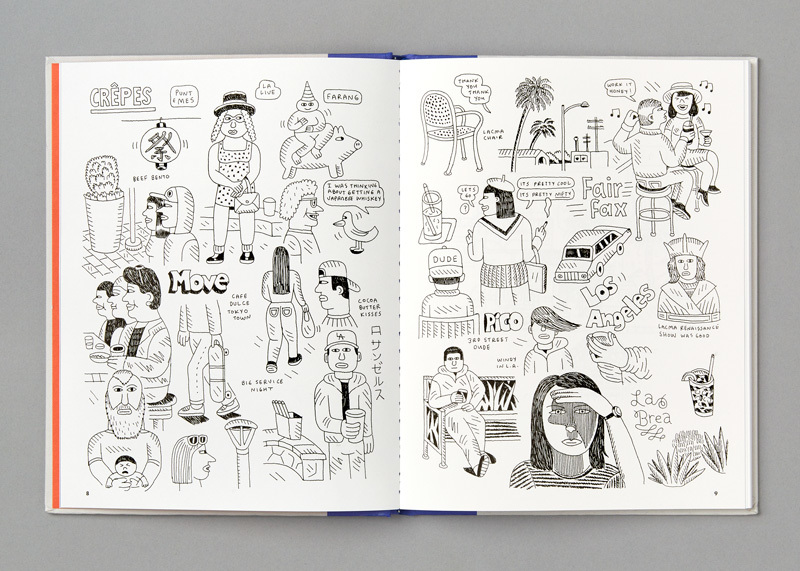 CRÊPES
PUNT
E MES
LA
LIVE
FARANG
BEEF BENTO
I WAS THINKING
ABOUT GETTING A
WHISKEY
Move
CAFE
DULCE
TOKYO
TOWN
COCOA
BUTTER
KISSES
ロサンゼルス
LA
BIG SERVICE
NIGHT
8
THANK
YOU
THANK
YOU
LACMA
CHAIR
WORK IT
HONEY!
LETS
GO
ITS PRETTY COOL
ITS PRETTY NIFTY
Fair
fax
DUDE
Los
Angeles
PICO
3RD STREET
DUDE
WINDY
IN L.A.
LACMA RENAISSANCE
SHOW WAS GOOD
La
Brea
9